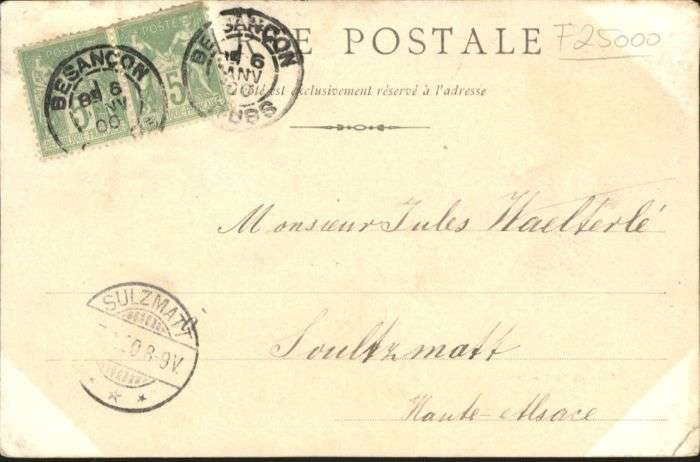 BESANÇON
6
JANV
00
DOUBS
BESANÇON
6
00
POSTE
5
CARTE POSTALE
F25000
Ce côté est exclusivement réservé à l'adresse
Monsieur Jules Waelterlé
SULZMATT
00 8-9V.
Soultzmatt
Haute-Alsace